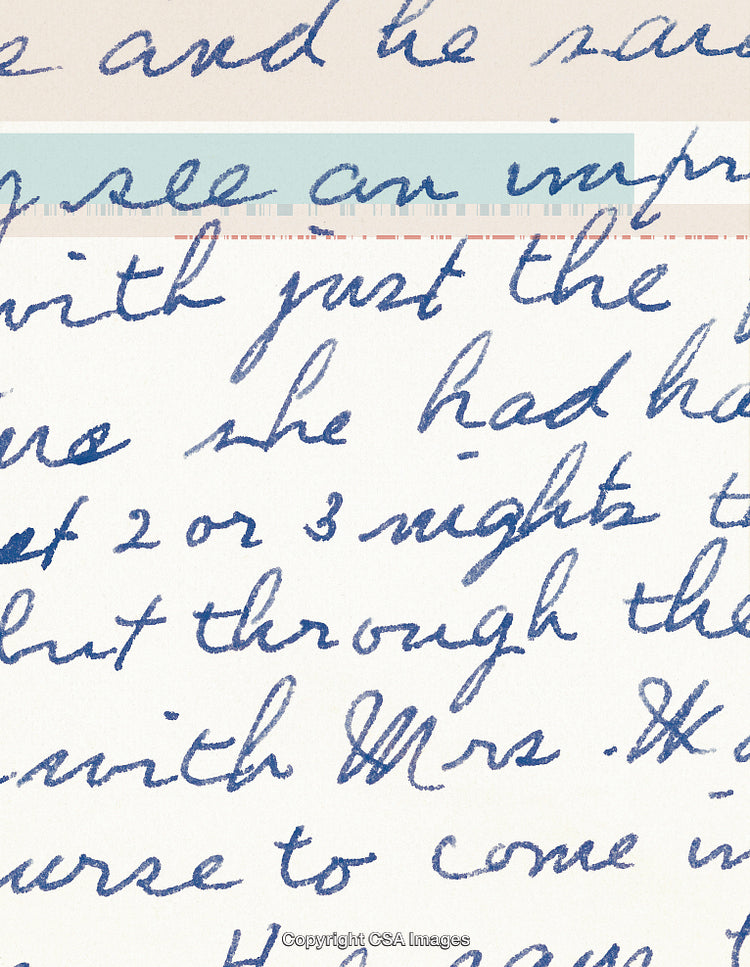 and he said
see an
with just the
she had
2 or 3 nights
but through the
with Mrs. W
to come in
Copyright CSA Images